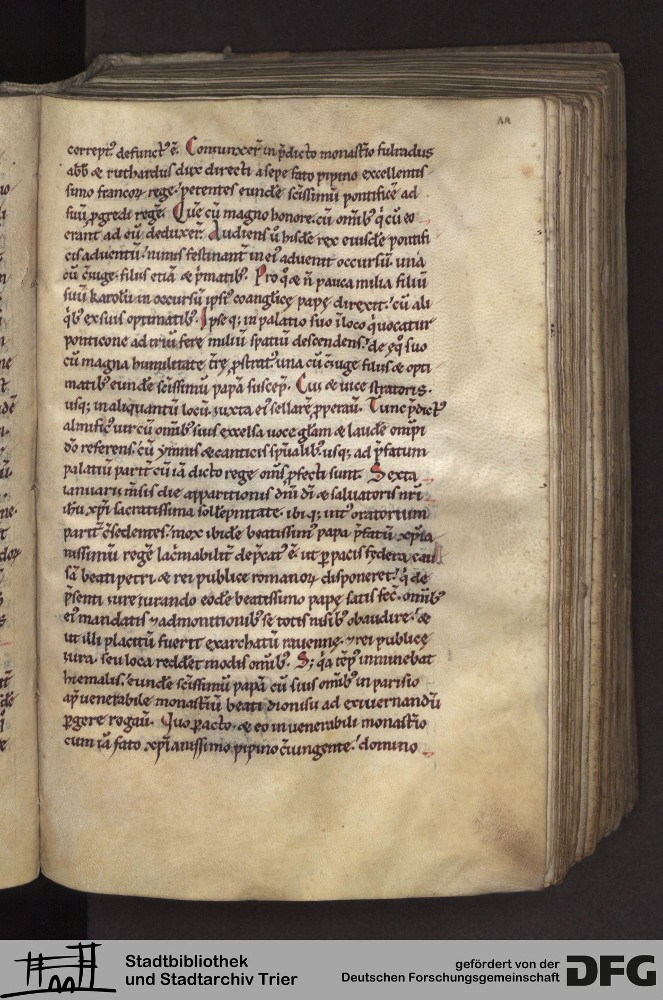 correpť defunct᾽ ē. Coniunxer̄ in p̄dicto monast̄io fulradus
abb̄ & ruthardus dux directi a sepe fato pipino excellentis
simo francoꝝ rege. petentes eundē sc̄issimū pontificē ad
suū ꝓgredi regē. Quē cū magno honore. cū om̄ib᾽ q̇ cū eo
erant ad eū deduxer̄. Audiens u̇ hisdē rex eiusdē pontifi
cis aduentū. nimis festinant̄ in ei᾽ aduenit occursū una
cū c̄iuge. filiis etiā & p̄matib᾽. Pro q̇ & n̄ pauca milia filiū
suū karolū in occursū ipsi᾽ coangelicę papę direxit. cū ali
q̇b᾽ ex suis optimatib᾽. Ipse q; in palatio suo īloco q̇ uocatur
ponticone ad triū fere miliū spatiū descendens. de ęq̇ suo
cū magna humilitate t̄rę ꝓstrat᾽ una cū c̄iuge filiis & opti
matib᾽ eundē sc̄issimū papā suscep̄. Cui & uice stratoris.
usq; in aliquantū locū. iuxta ei᾽ sellarē ꝓperauit̄. Tunc p̄dict᾽
almific᾽ uir cū om̄ib᾽ suis excelsa uoce gl̄am & laudē om̄pi
d̄o referens. cū ymnis & canticis sp̄ualib᾽. usq; ad p̄fatum
palatiū parit̄ cū iā dicto rege om̄s ꝓfecti sunt. Sexta
ianuarii m̄sis die apparitionis dn̄i dī & saluatoris nr̄i
ih̄u xp̄i sacratissima sollēpnitate. ibi q; int᾽ oratorium
parit̄ c̄sedentes. mox ibidē beatissim᾽ papa p̄fatū xp̄ia
nissimū regē lac̄mabilit̄ dep̄cat᾽ ē. ut ꝑ pacis fędera cau
sā beati petri & rei publice romanoꝝ disponeret. q̇ de
p̄senti iure iurando eodē beatissimo papę satis fec̄. om̄ib᾽
ei᾽ mandatis ⁊ admonitionib᾽ se totis nisib᾽ obaudire. &
ut illi placitū fuerit exarchatū rauennę. ⁊ rei publicę
iura. seu loca reddet̄ modis om̄ib᾽. S; q̇a tēp᾽ imminebat
hiemalis. eundē sc̄issimū papā cū suis om̄ib᾽ in parisio
ap̄ uenerabile monast̄iū beati dionisii ad exiuernandū
ꝑgere rogauit̄. Quo ꝑacto. & eo in uenerabili monast̄io
cum iā fato xp̄ianissimo pipino c̄iungente. domino
Stadtbibliothek
und Stadtarchiv Trier
gefördert von der
Deutschen Forschungsgemeinschaft
DFG